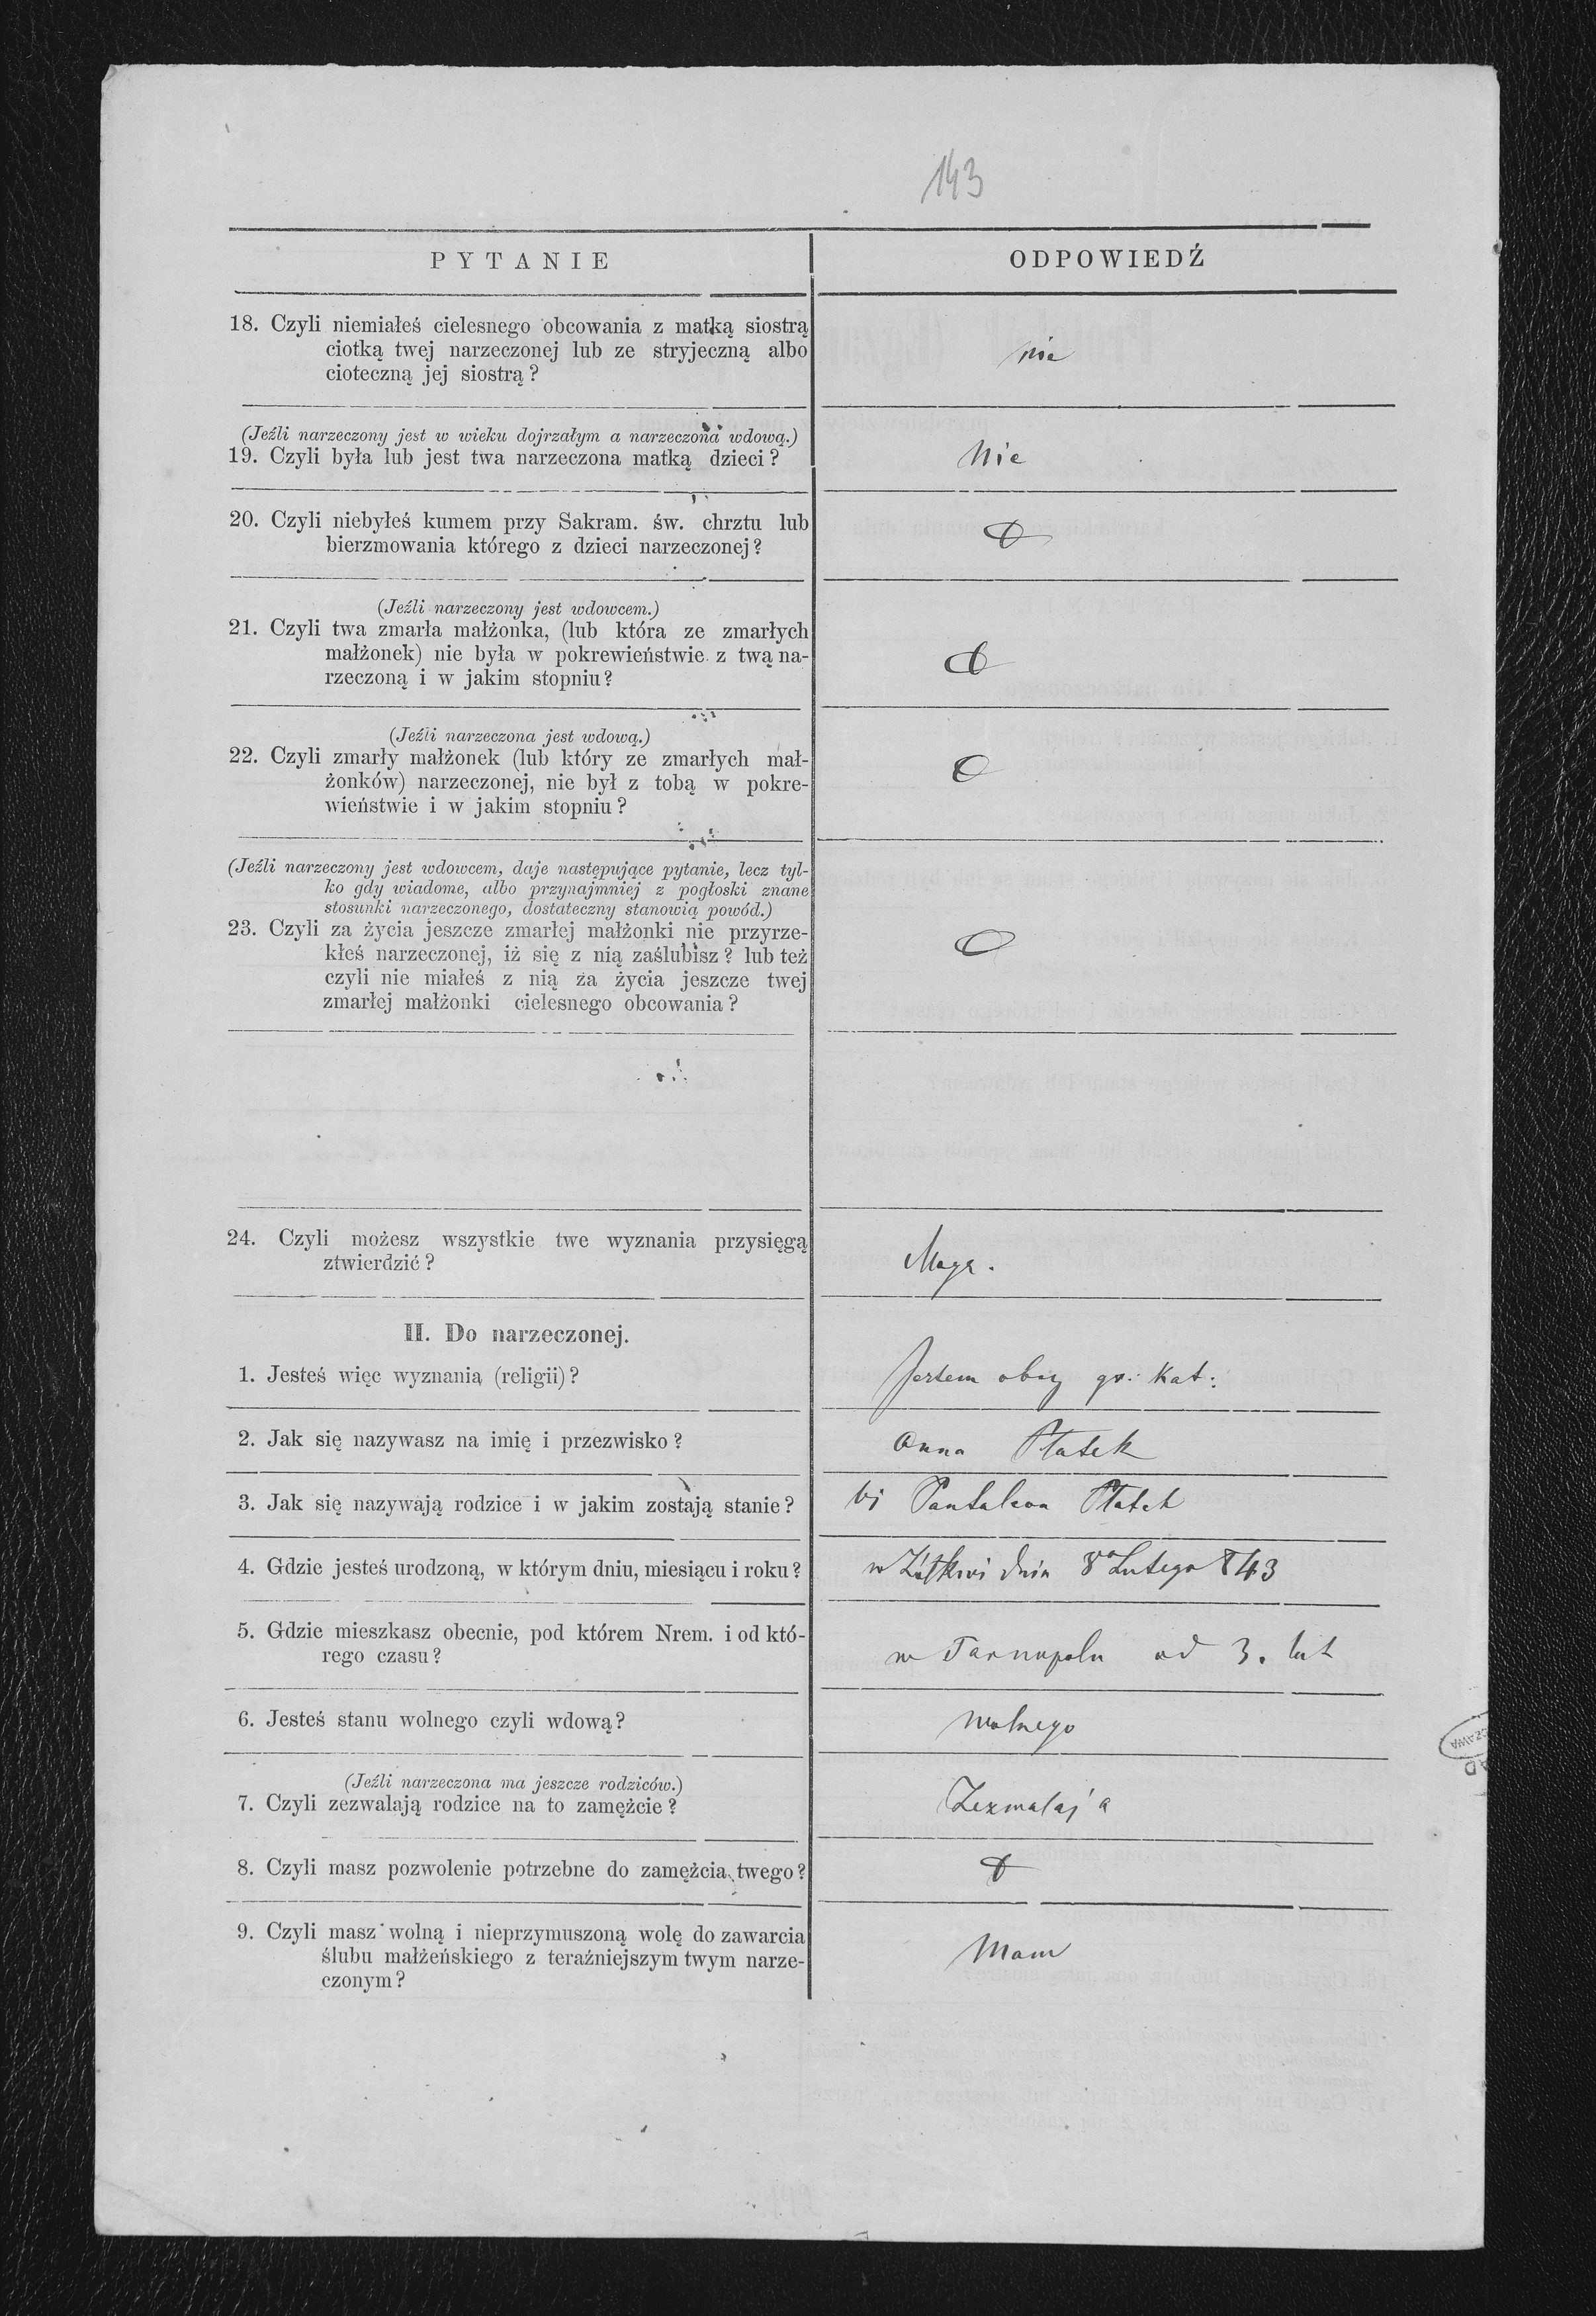 143
PYTANIE
ODPOWIEDŹ
18. Czyli niemiałeś cielesnego obcowania z matką siostrą
ciotką twej narzeczonej lub ze stryjeczną albo
cioteczną jej siostrą?
nie
(Jeźli narzeczony jest w wieku dojrzałym a narzeczona wdową.)
19. Czyli była lub jest twa narzeczona matką dzieci?
Nie
20. Czyli niebyłeś kumem przy Sakram. św. chrztu lub
bierzmowania którego z dzieci narzeczonej?
(Jeźli narzeczony jest wdowcem.)
21. Czyli twa zmarła małżonka, (lub która ze zmarłych
małżonek) nie była w pokrewieństwie z twą na-
rzeczoną i w jakim stopniu?
(Jeźli narzeczona jest wdową.)
22. Czyli zmarły małżonek (lub który ze zmarłych mał-
żonków) narzeczonej, nie był z tobą w pokre-
wieństwie i w jakim stopniu?
(Jeźli narzeczony jest wdowcem, daje następujące pytanie, lecz tyl-
ko gdy wiadome, albo przynajmniej z pogłoski znane
stosunki narzeczonego, dostateczny stanowią powód.)
23. Czyli za życia jeszcze zmarłej małżonki nie przyrze-
kłeś narzeczonej, iż się z nią zaślubisz? lub też
czyli nie miałeś z nią za życia jeszcze twej
zmarłej małżonki cielesnego obcowania?
24. Czyli możesz wszystkie twe wyznania przysięgą
ztwierdzić?
Mogę.
II. Do narzeczonej.
1. Jesteś więc wyznanią (religii)?
Jestem obrz gr: kat:
2. Jak się nazywasz na imię i przezwisko?
Anna Płatek
3. Jak się nazywają rodzice i w jakim zostają stanie?
Pantaleon Płatek
4. Gdzie jesteś urodzoną, w którym dniu, miesiącu i roku?
w Żółkwi dnia 8o Lutego 843
5. Gdzie mieszkasz obecnie, pod którem Nrem. i od któ-
rego czasu?
w Tarnopolu od 3. lat
6. Jesteś stanu wolnego czyli wdową?
wolnego
(Jeźli narzeczona ma jeszcze rodziców.)
7. Czyli zezwalają rodzice na to zamężcie?
Zezwalaja
8. Czyli masz pozwolenie potrzebne do zamężcia twego?
9. Czyli masz wolną i nieprzymuszoną wolę do zawarcia
ślubu małżeńskiego z teraźniejszym twym narze-
czonym?
Mam